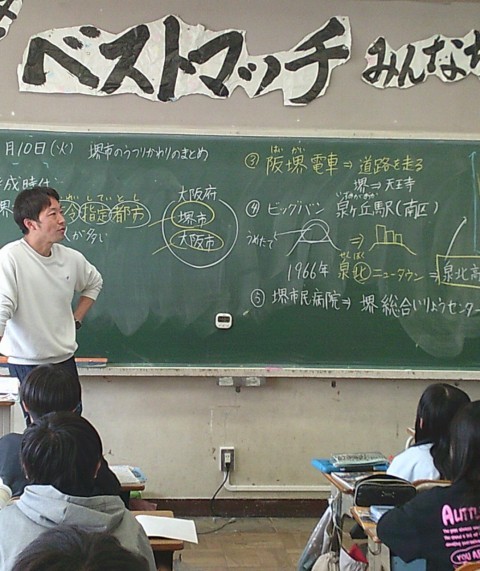 ベストマッチ
みんな
月10日(火) 堺市のうつりかわりのまとめ
成時代
政令指定都市
せいれいしていとし
が多い
大阪府
堺市
大阪市
③ 阪堺電車⇒道路を走る
はんかい
堺⇒天王寺
④ ビッグバン 泉ヶ丘駅(南区)
いずみがおか
うめたて
⇒
せんぼく
1966年 泉北ニュータウン⇒泉北高
⑤ 堺市民病院⇒堺総合いりょうセンター
ALITTL
YOU A